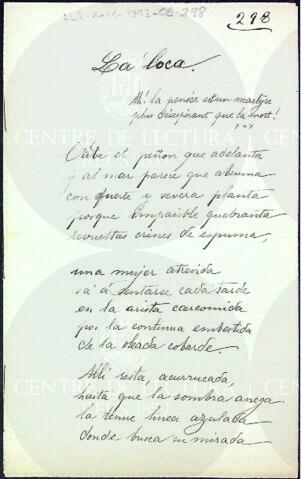 298
La loca.
Ah! la pensée est un martyre
plus désespérant que la mort!
Sobre el peñon que adelanta
y al mar parece que abruma
con fuerte y severa planta
porque impasible quebranta
revueltas crines de espuma,
una mujer atrevida
vá á sentarse cada tarde
en la arista carcomida
por la continua embestida
de la oleada cobarde.
Allí resta, acurrucada,
hasta que la sombra anega
la tenue linea azulada
donde busca su mirada
CENTRE DE LECTURA